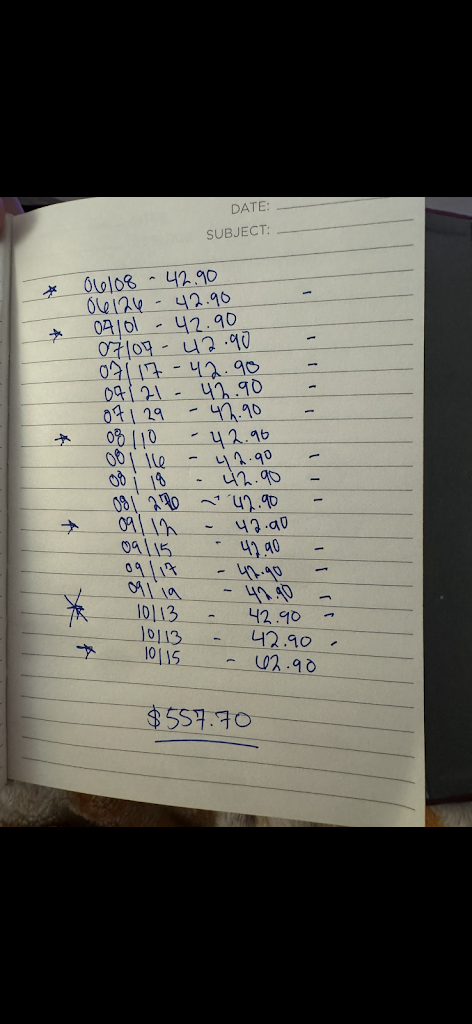 DATE:
SUBJECT:
06/08 - 42.90
06/26 - 42.90 -
07/01 - 42.90
07/07 - 42.90 -
07/17 - 42.90 -
07/21 - 42.90 -
07/29 - 42.90 -
08/10 - 42.90
08/16 - 42.90 -
08/18 - 42.90 -
08/ - 42.90 -
09/12 - 42.90
09/15 - 42.90 -
09/17 - 42.90 -
09/19 - 42.90 -
10/13 - 42.90 -
10/13 - 42.90 -
10/15 - 42.90
$557.70